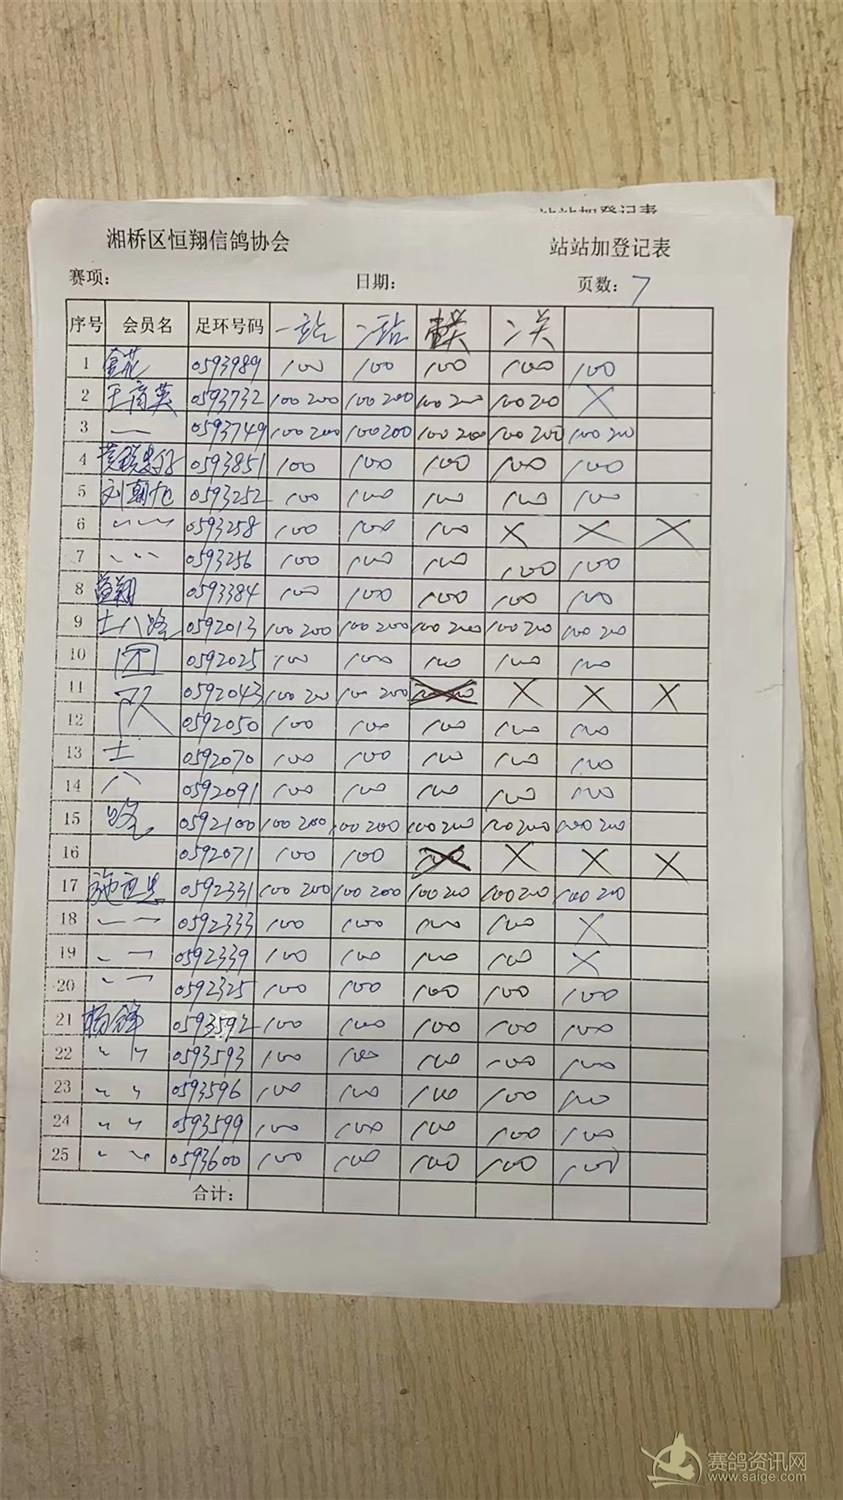 站站加登记表
湘桥区恒翔信鸽协会 站站加登记表
赛项: 日期: 页数: 7
序号 会员名 足环号码 一站 二站 二关
1 0593989 100 100 100 100 100
2 王商英 0593732 100 200 100 200 100 200 100 200 X
3 〃 0593749 100 200 100 200 100 200 100 200 100 200
4 0593851 100 100 100 100 100
5 刘朝旭 0593252 100 100 100 100 100
6 〃 〃 0593258 100 100 100 X X X
7 〃 〃 0593256 100 100 100 100 100
8 0593384 100 100 100 100 100
9 士八路 0592013 100 200 100 200 100 200 100 200 100 200
10 团 0592025 100 100 100 100 100
11 双 0592043 100 200 100 200 X X X
12 0592050 100 100 100 100 100
13 士 0592070 100 100 100 100 100
14 八 0592091 100 100 100 100 100
15 路 0592100 100 200 100 200 100 200 100 200 100 200
16 0592071 100 100 100 X X X
17 0592331 100 200 100 200 100 200 100 200 100 200
18 〃 〃 0592333 100 100 100 100 X
19 〃 〃 0592339 100 100 100 100 X
20 〃 〃 0592325 100 100 100 100 100
21 杨锋 0593592 100 100 100 100 100
22 〃 〃 0593593 100 100 100 100 100
23 〃 〃 0593596 100 100 100 100 100
24 〃 〃 0593599 100 100 100 100 100
25 〃 〃 0593600 100 100 100 100 100
合计:
赛鸽资讯网
www.saige.com